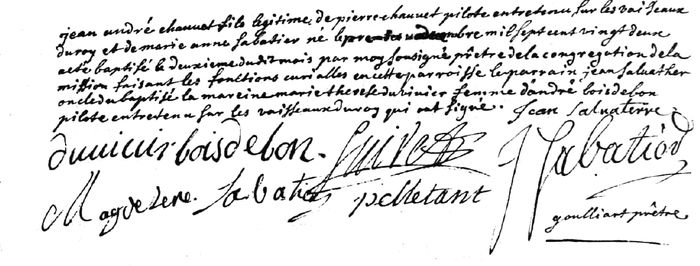 jean andré chauvet fils legitime de pierre chauvet pilote entretenu sur les vaisseaux
du roy et de marie anne sabatier né le premier novembre mil sept cent vingt deux
a eté baptisé le deuxieme dudit mois par moy soussigné prêtre de la congregation de la
mission faisant les fonctions curialles en cette parroisse le parrain jean salvather
oncle du baptisé la mareine marie therese du vivier femme d'andré bois de bon
pilote entretenu sur les vaisseaux du roy qui ont signé. Jean Salvaterre
duvivier boisdebon. Guirott J Sabatier
Magdelene Sabatier pelletant
goulliart prêtre